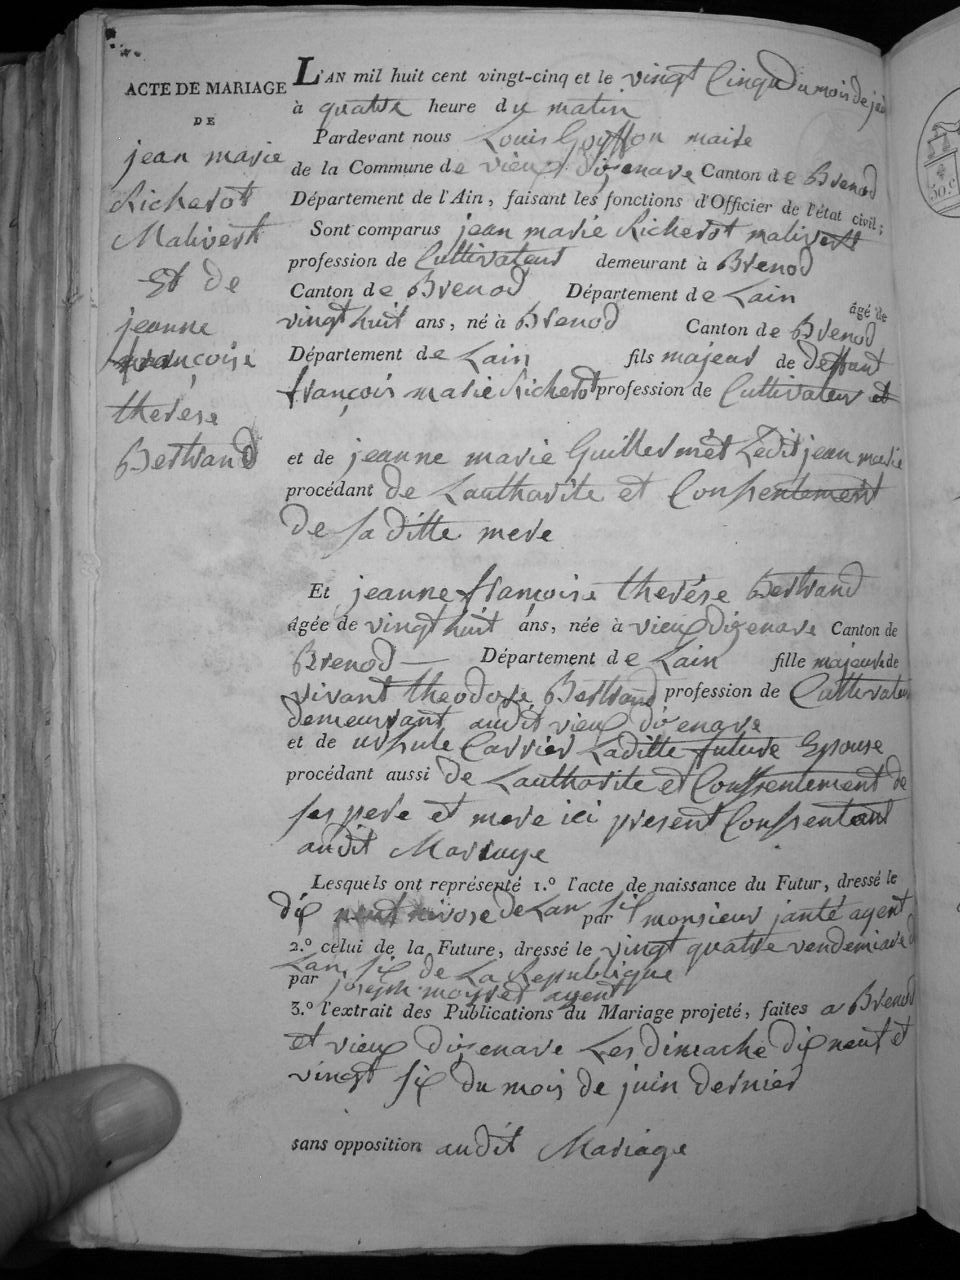 ACTE DE MARIAGE
DE
jean marie
Richerot
Malivert
Et de
jeanne
françoise
therese
Bertrand
L'AN mil huit cent vingt-cinq et le vingt Cinq du mois de
à quatre heure du matin
Pardevant nous Louis Goyffon maire
de la Commune de vieux dizenave Canton de Brenod
Département de l'Ain, faisant les fonctions d'Officier de l'état civil;
Sont comparus jean marie Richerot malivert
profession de Cultivateur demeurant à Brenod
Canton de Brenod Département de Lain âgé de
vingt huit ans, né à Brenod Canton de Brenod
Département de Lain fils majeur de deffunt
françois marie Richerot profession de Cultivateur et
et de jeanne marie Guillermet Ledit jean marie
procédant de Lauthorite et Consentement
de sa ditte mere
Et jeanne françoise therése Bertrand
âgée de vingt huit ans, née à vieux dizenave Canton de
Brenod Département de Lain fille majeure de
vivant theodore Bertrand profession de Cultivateur
demeurant audit vieux dizenave
et de ursule Carrier Laditte future Epouse
procédant aussi de Lauthorite et Consentement de
ses pere et mere ici present Consentant
audit Mariage
Lesquels ont représenté 1.º l'acte de naissance du Futur, dressé le
dix neuf nivose de Lan six par monsieur janté agent
2.º celui de la Future, dressé le vingt quatre vendemiare
Lan six de La Republique
par joseph moyret agent
3.º l'extrait des Publications du Mariage projeté, faites a Brenod
et vieux dizenave Les dimache dix neuf et
vingt six du mois de juin dernier
sans opposition audit Mariage
30.c